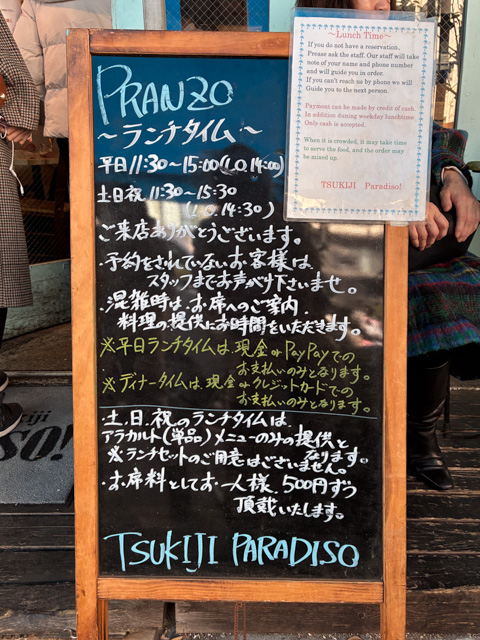 PRANZO
～ランチタイム～
平日11:30～15:00(L.O.14:00)
土日祝11:30～15:30
(L.O.14:30)
ご来店ありがとうございます。
・予約をされていないお客様は
スタッフまでお声がけ下さいませ。
・混雑時はお席へのご案内
料理の提供にお時間をいただきます。
※平日ランチタイムは現金orPayPayでの
お支払いのみとなります。
※ディナータイムは現金orクレジットカードでの
お支払いのみとなります。
・土.日.祝のランチタイムは
アラカルト(単品)メニューのみの提供と
なります。
※ランチセットのご用意はございません。
・お席料としてお一人様500円ずつ
頂戴いたします。
TSUKIJI PARADISO
～Lunch Time～
If you do not have a reservation,
Please ask the staff. Our staff will take
note of your name and phone number
and will guide you in order.
If you can't reach us by phone we will
Guide you to the next person.
Payment can be made by credit of cash.
In addition duming weekday lunchtime
Only cash is accepted.
When it is crowded, it may take time
to serve the food, and the order may
be mixed up.
TSUKIJI Paradiso!
SO!